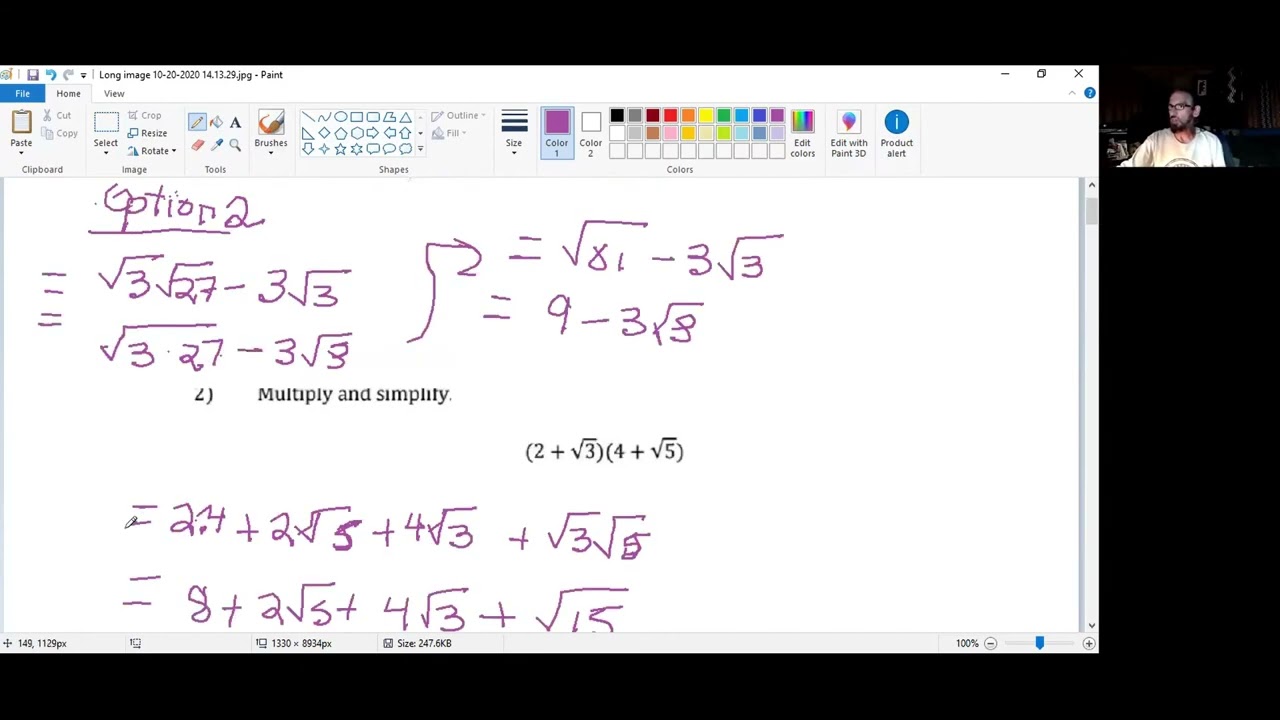 Long image 10-20-2020 14.13.29.jpg - Paint
File Home View
Paste
Cut
Copy
Clipboard
Select
Crop
Resize
Rotate
Image
A
Tools
Brushes
Shapes
Outline
Fill
Size
Color 1
Color 2
Edit colors
Colors
Edit with Paint 3D
Product alert
Option 2
= √3√27 - 3√3
= √3·27 - 3√3
= √81 - 3√3
= 9 - 3√3
2) Multiply and simplify.
(2 + √3)(4 + √5)
= 2·4 + 2√5 + 4√3 + √3√5
= 8 + 2√5 + 4√3 + √15
149, 1129px
1330 × 8934px
Size: 247.6KB
100%